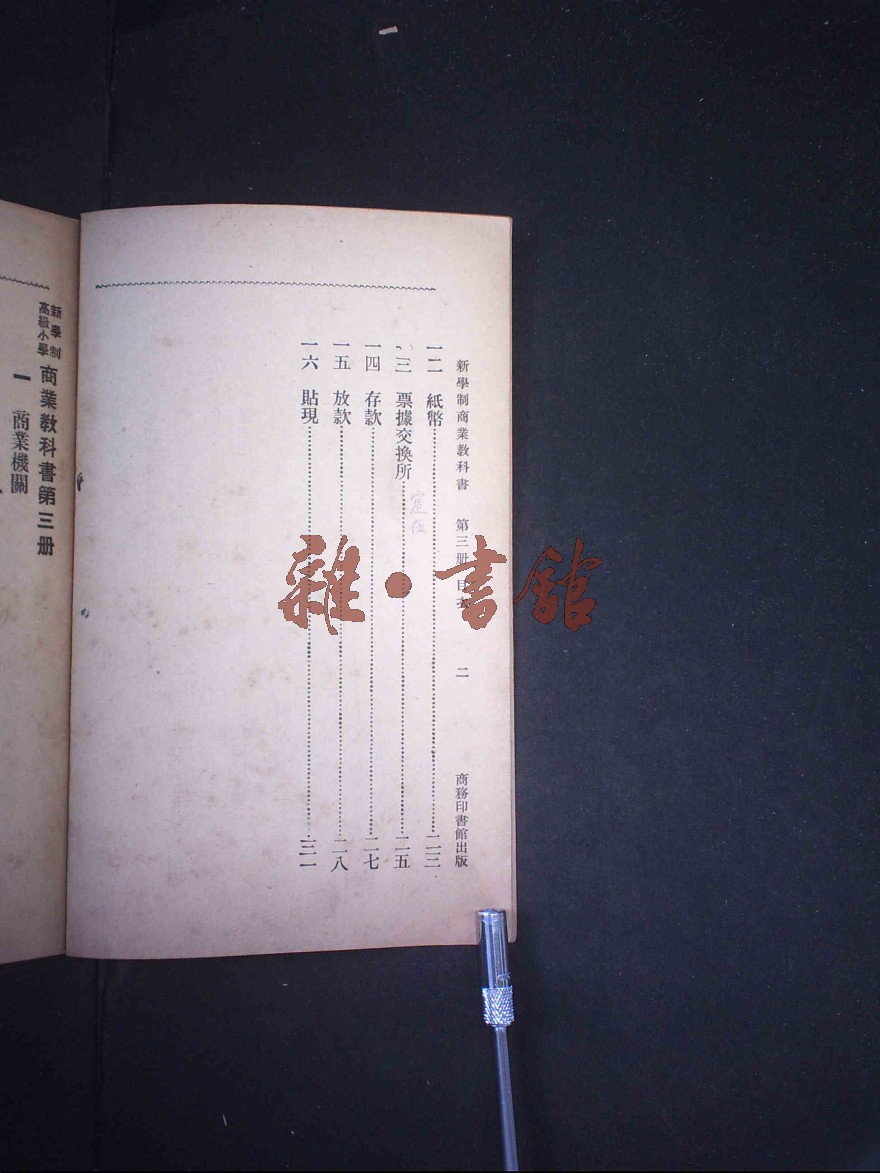 新學制商業教科書 第三册目次 二 商務印書館出版
一二 紙幣 二三
一三 票據交換所 二五
一四 存款 二七
一五 放款 二八
一六 貼現 三一
新學制
高級小學
商業教科書第三册
一 商業機關
雜·書館